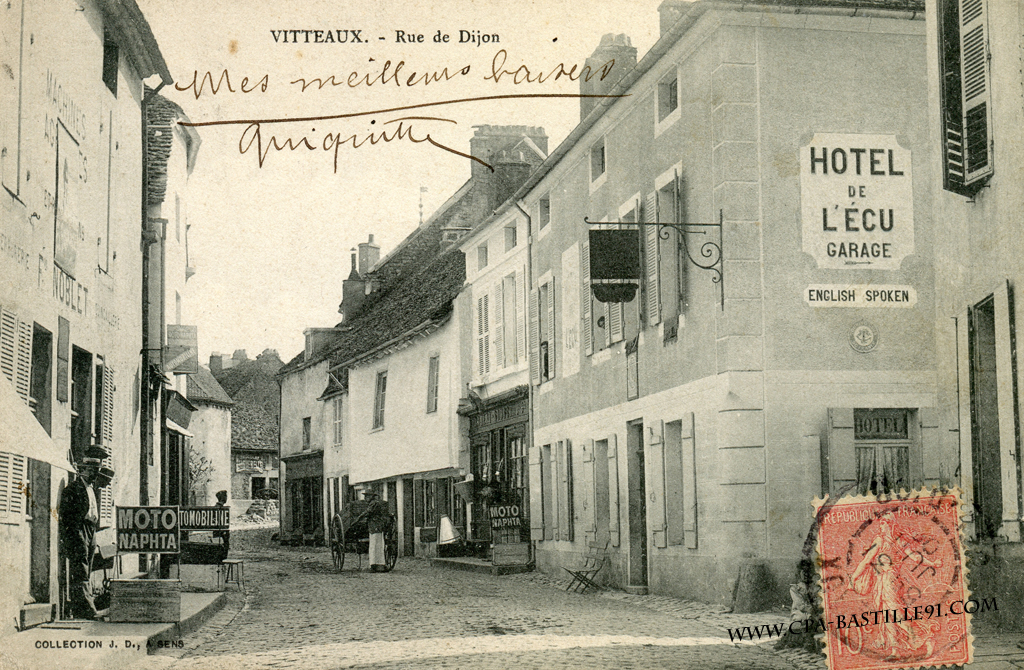 VITTEAUX. - Rue de Dijon
Mes meilleurs baisers
MACHINES
F. NOBLET
HOTEL
DE
L'ÉCU
GARAGE
ENGLISH SPOKEN
HOTEL
MOTO
NAPHTA
TOMOBILINE
MOTO
NAPHTA
REPUBLIQUE FRANÇAISE
10
COLLECTION J. D., A SENS
WWW.CPA-BASTILLE91.COM